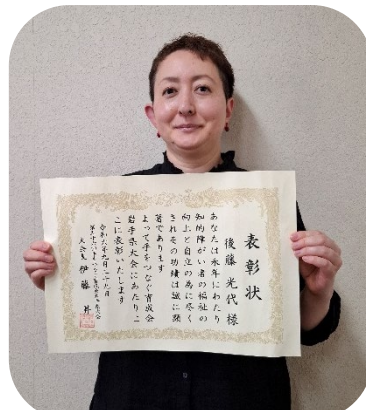 表彰状
後藤光代様
あなたは永年にわたり
知的障がい者の福祉の
向上と自立の為に尽く
されその功績は誠に顕
著であります
よって手をつなぐ育成会
岩手県大会にあたりこ
こに表彰いたします
令和六年九月二十九日
大会長 伊藤 昇